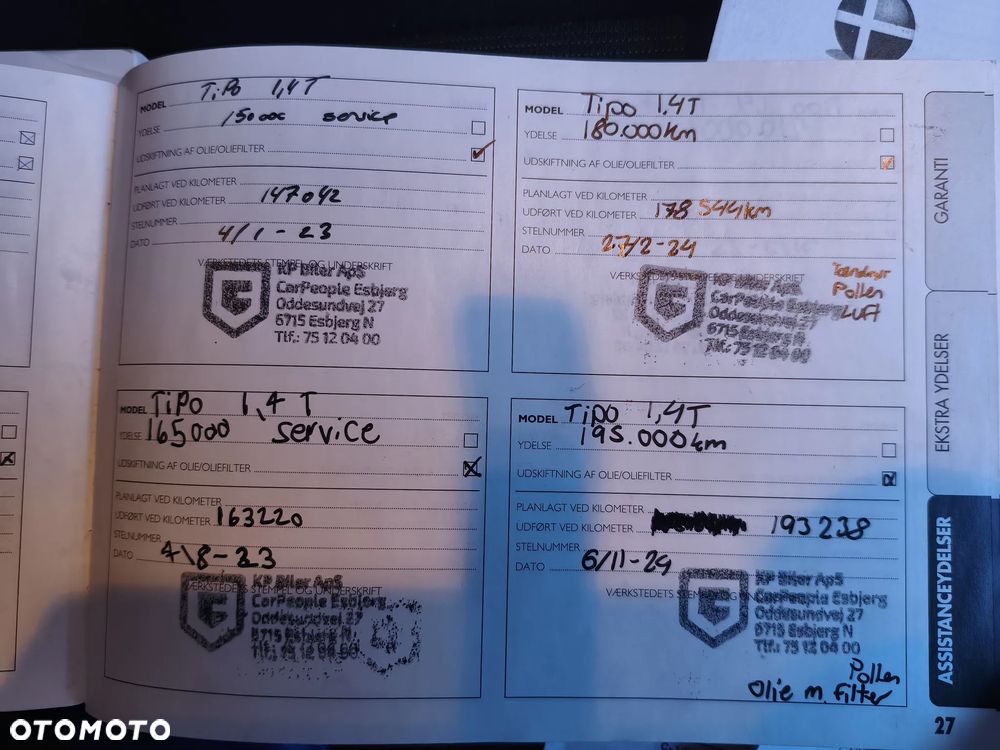 MODEL Tipo 1,4T
YDELSE 15000 service
UDSKIFTNING AF OLIE/OLIEFILTER
PLANLAGT VED KILOMETER
UDFØRT VED KILOMETER 147042
STELNUMMER
DATO 4/1-23
VÆRKSTEDETS STEMPEL OG UNDERSKRIFT
KP Biler ApS
CarPeople Esbjerg
Oddesundvej 27
6715 Esbjerg N
Tlf.: 75 12 04 00
MODEL Tipo 1.4T
YDELSE 180.000km
UDSKIFTNING AF OLIE/OLIEFILTER
PLANLAGT VED KILOMETER
UDFØRT VED KILOMETER 178544km
STELNUMMER
DATO 27/2-24
VÆRKSTEDETS STEMPEL OG UNDERSKRIFT
KP Biler ApS
CarPeople Esbjerg
Oddesundvej 27
6715 Esbjerg N
Tlf.: 75 12 04 00
Pollen
Luft
MODEL Tipo 1,4 T
YDELSE 165000 service
UDSKIFTNING AF OLIE/OLIEFILTER
PLANLAGT VED KILOMETER
UDFØRT VED KILOMETER 163220
STELNUMMER
DATO 4/8-23
VÆRKSTEDETS STEMPEL OG UNDERSKRIFT
KP Biler ApS
CarPeople Esbjerg
Oddesundvej 27
6715 Esbjerg N
Tlf.: 75 12 04 00
MODEL Tipo 1,4T
YDELSE 195.000km
UDSKIFTNING AF OLIE/OLIEFILTER
PLANLAGT VED KILOMETER
UDFØRT VED KILOMETER 193238
STELNUMMER
DATO 6/11-24
VÆRKSTEDETS STEMPEL OG UNDERSKRIFT
KP Biler ApS
CarPeople Esbjerg
Oddesundvej 27
6715 Esbjerg N
Tlf.: 75 12 04 00
Pollen
Olie m. Filter
GARANTI
EKSTRA YDELSER
ASSISTANCEYDELSER
27
OTOMOTO